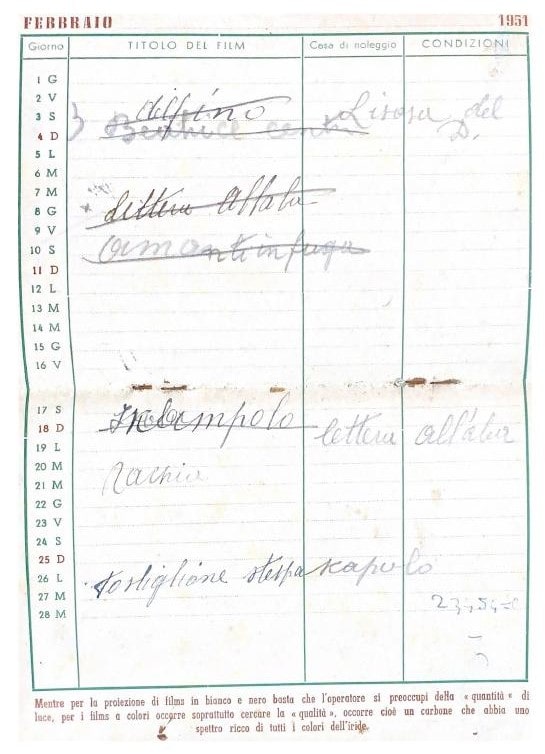 FEBBRAIO 1951
Giorno TITOLO DEL FILM Casa di noleggio CONDIZIONI
1 G
2 V
3 S del
4 D Beatrice cenci
5 L
6 M
7 M
8 G lettera all'alba
9 V
10 S amanti in fuga
11 D
12 L
13 M
14 M
15 G
16 V
17 S
18 D lettera
19 L
20 M
21 M
22 G
23 V
24 S
25 D
26 L
27 M
28 M
Mentre per la proiezione di films in bianco e nero basta che l'operatore si preoccupi della « quantità » di
luce, per i films a colori occorre soprattutto cercare la « qualità », occorre cioè un carbone che abbia uno
spettro ricco di tutti i colori dell'iride.